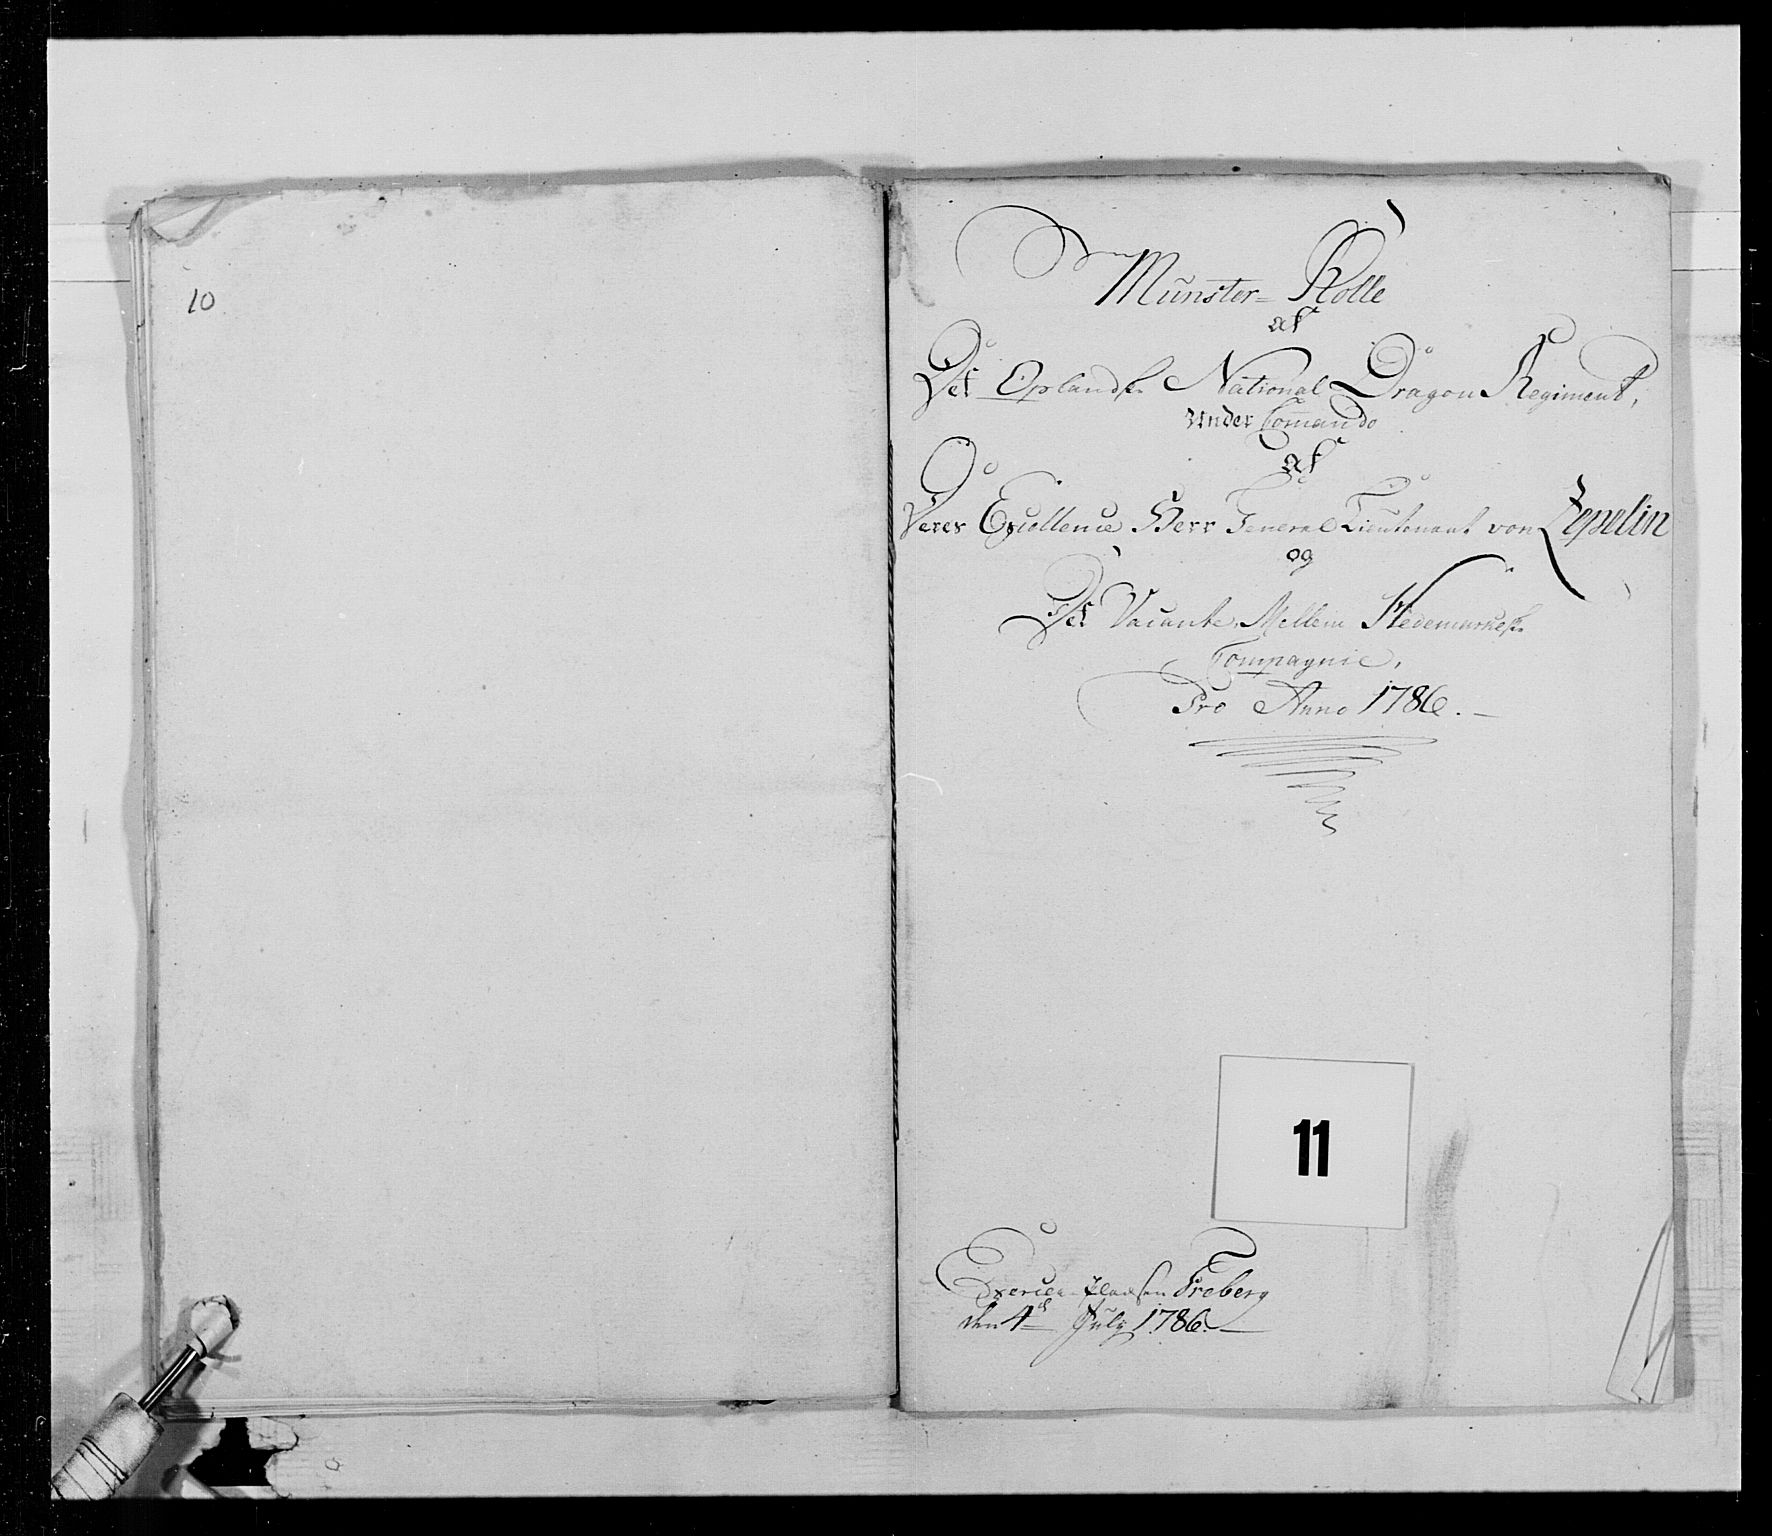 10
Munster-Rolle
af
Det Oplandske National Dragon Regiment,
Under Commando
af
Deres Excellence Herr General Lieutenant von Zepelin
og
Det Vacante Mellem Hedemarkeske
Compagnie,
Pro Anno 1786.
11
Exercer-Pladsen Froberg
den 4de July 1786.